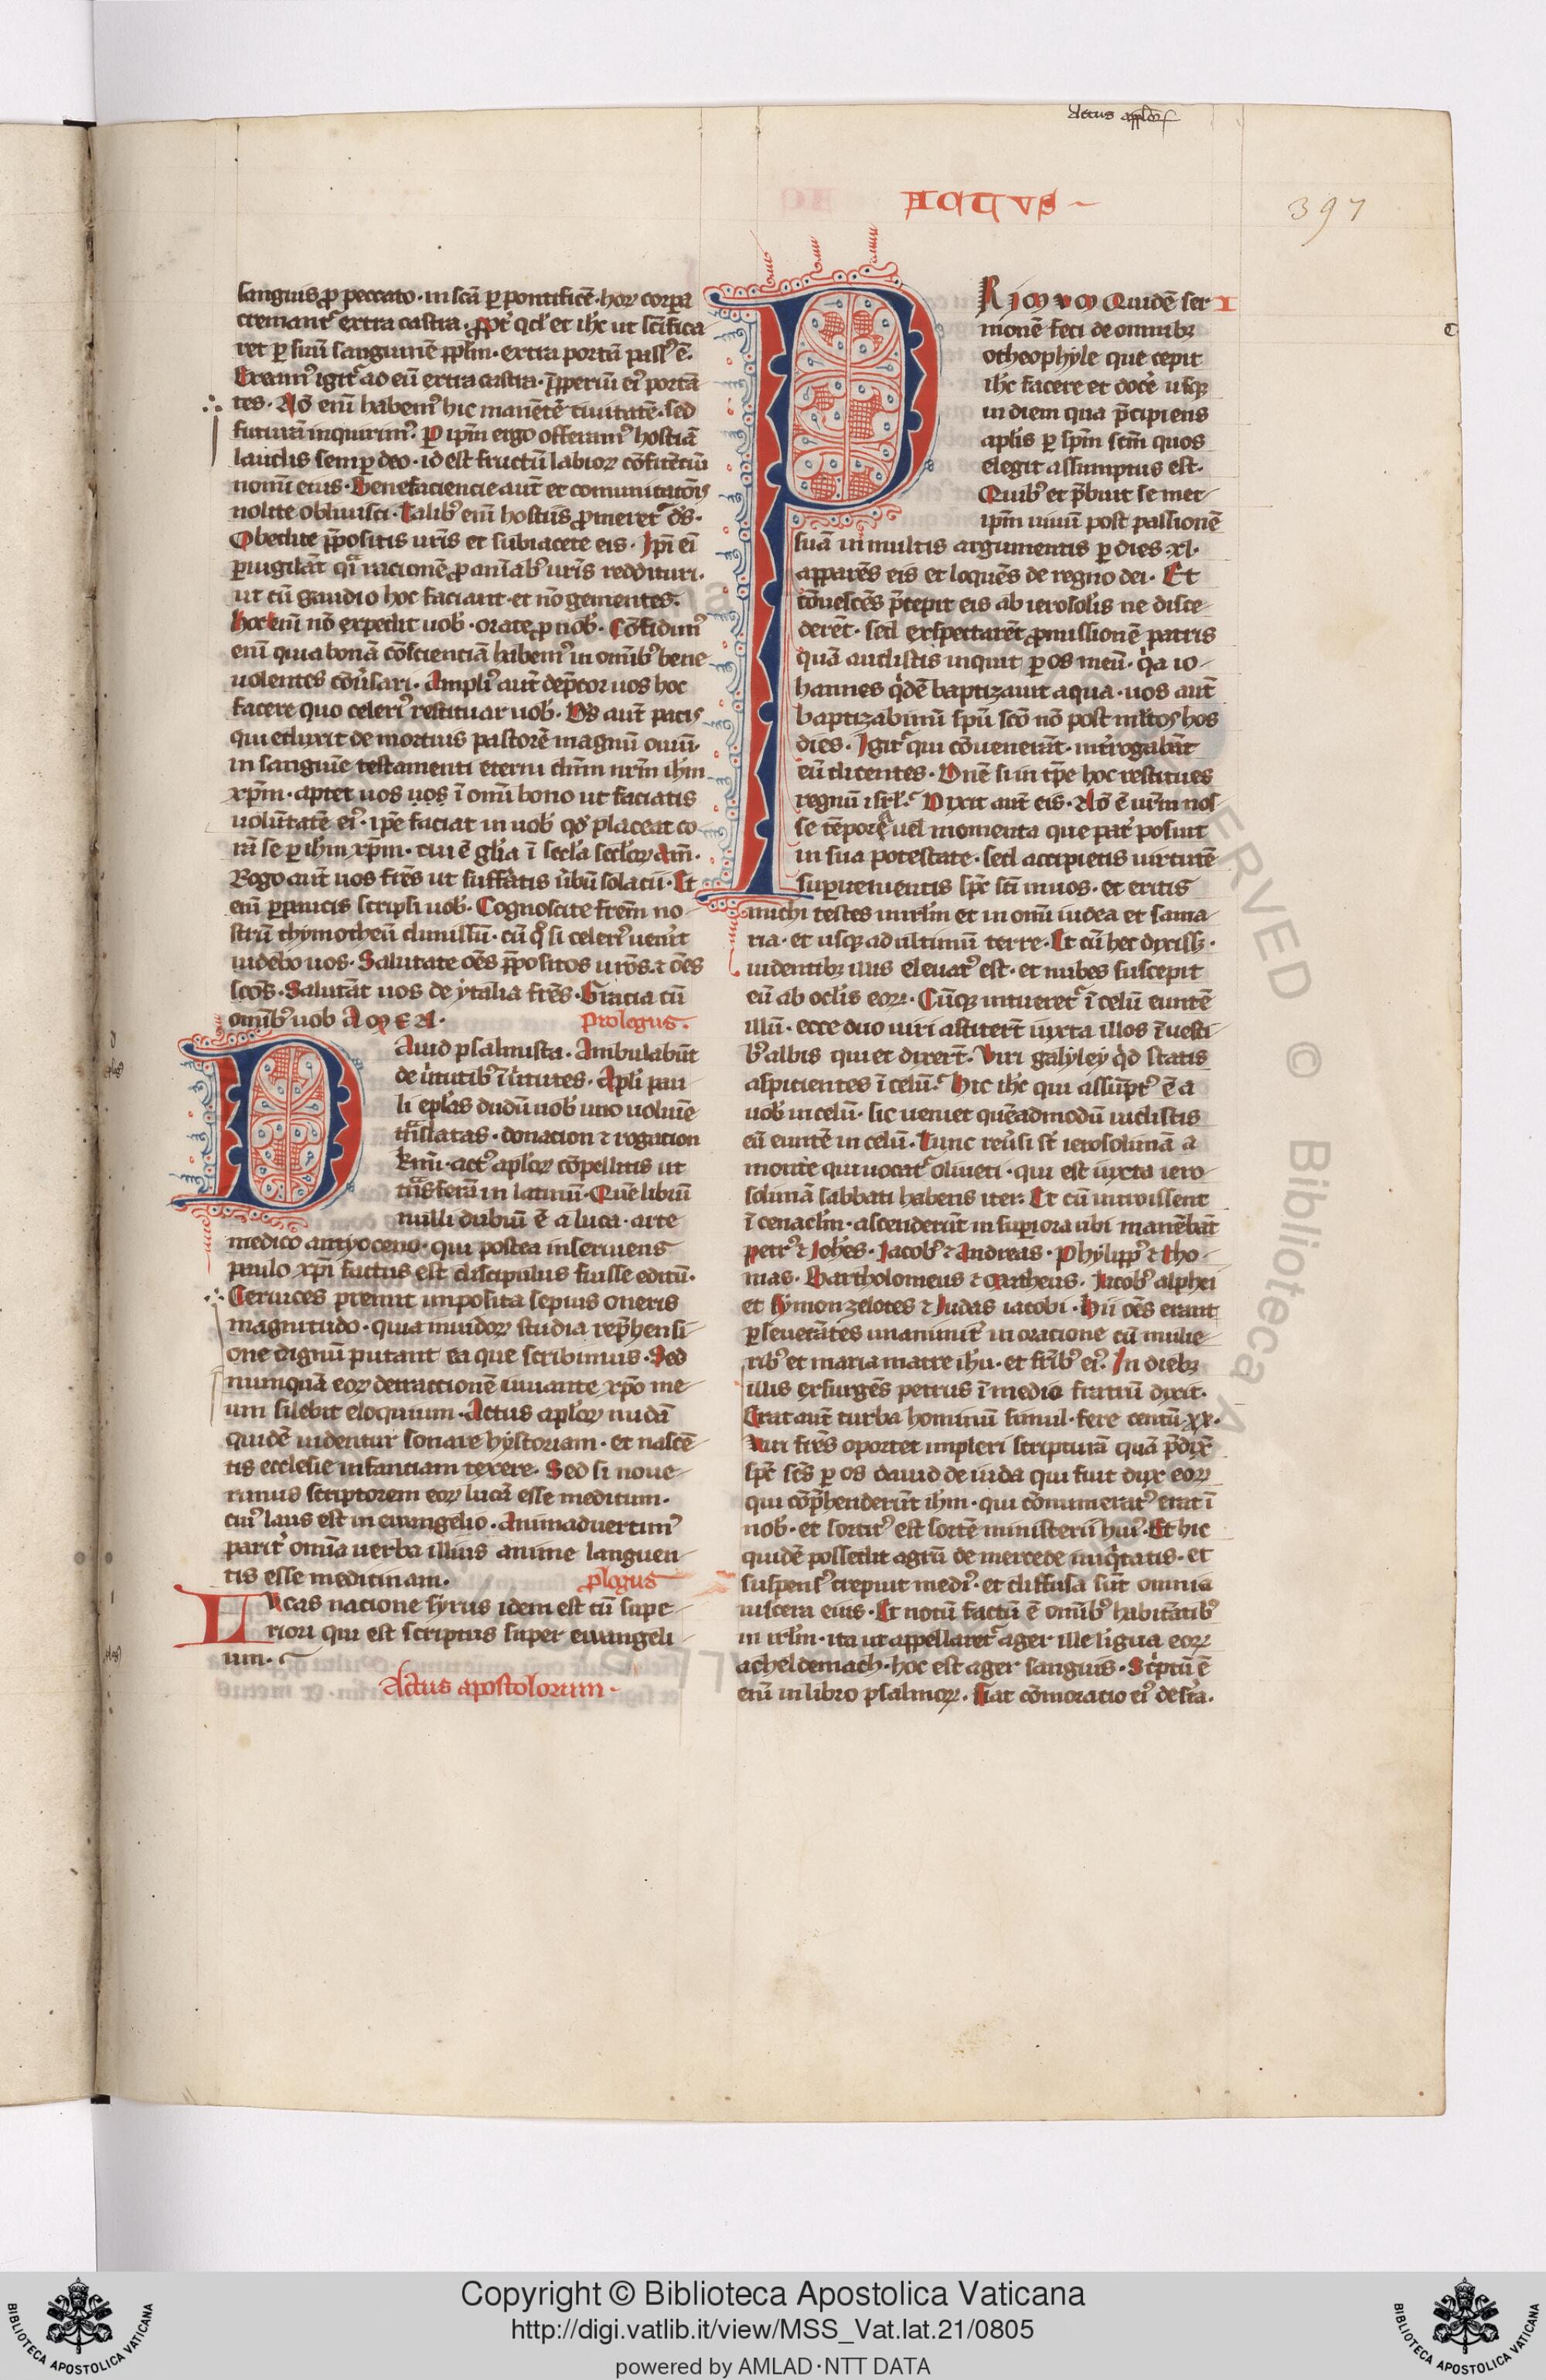 Actus aplorꝫ
ACTVS
397
sanguis ꝓ peccato · in scā ꝑ pontificē · horꝝ corpa
cremantᷣ extra castra · ꝓpt̾ qđ et ihc ut scīfica
ret ꝑ suū sanguinē pplm · extra portā pass᷒ ē.
Exeam᷒ igitᷣ ad eū extra castra · īproperiū ei᷒ portā
tes · Nō enī habem᷒ hic manētē ciuitatē · sed
futurā inquirim᷒. P ipm ergo offeram᷒ hostiā
laudis semꝑ deo · id est fructū labioꝝ cōfitētiū
nomī eius · Beneficiencie aut̄ et comunicatōis
nolite obliuisci · Talib᷒ enī hostiis ꝓmeretᷣ ds̄·
Obedite p̄positis ur̄is et subiacete eis · Ipī ei
ꝑuigilāt qᷓ racionē ꝓ aniab᷒ ur̄is reddituri·
ut cū gaudio hoc faciant · et nō gementes·
Hoc enī nō expedit uob᷒ · orate ꝓ nob᷒ · Cōfidim᷒
enī quia bonā cōscienciā habem᷒ in omīb᷒ bene
uolentes cōu̾sari · Ampli᷒ aut̄ dep̄cor uos hoc
facere quo celeri᷒ restituar uob᷒ · Ds̄ aut̄ pacis
qui eduxit de mortuis pastorē magnū ouiū·
in sanguīe testamenti eterni dnm nrm ihm
xp̄m · aptet uos uos ī omī bono ut faciatis
uolūtatē ei᷒ · ipe faciat in uob᷒ qđ placeat co
rā se ꝑ ihm xp̄m · cui ē glīa ī secla secloꝝ am̄·
Rogo aut̄ uos fr̄es ut sufferatis u̾bū solacii · Et
enī ꝑpaucis scripsi uob᷒ · Cognoscite frēm no
strū thymotheū dimissū · cū qͦ si celeri᷒ uen̾it
uidebo uos · Salutate oēs p̄positos ur̄os ⁊ oēs
scōs · Salutāt uos de ytalia fr̄es · Gracia cū
omīb᷒ uob᷒ AMEN·
Prologus·
Dauid psalmista · Ambulabūt
de u̾tutib᷒ ī u̾tutes · Apli pau
li eplas dudū uob᷒ uno uoluīe
trᷓslatas · donacion ⁊ rogacion
kmī · act᷒ aploꝝ cōpellitis ut
trᷓsferā in latinū · Quē librū
nulli dubiū ē a luca · arte
medico antyoceno · qui postea inseruiens
paulo xp̄i factus est discipulus fuisse editū·
Ceruices premit imposita sepius oneris
magnitudo · quia inuidoꝝ studia rep̄hensi
one dignū putant ea que scribimus · Sed
numquā eoꝝ detraccionē iuuante xp̄o me
um silebit eloquium · Actus aploꝝ nudā
quidē uidentur sonare hystoriam · et nascē
tis ecclesie infanciam texere · Sed si noue
rimus scriptorem eoꝝ lucā esse medicum·
cui᷒ laus est in ewangelio · Animaduertim᷒
parit̾ omīa uerba illius anime languen
tis esse medicinam·
plogus
Lvcas nacione syrus idem est cū supe
riori qui est scriptus super ewangeli
um·
Actus apostolorum·
PRIMVM Quidē ser
I
monē feci de omnibꝫ
o theophyle que cepit
ihc facere et docē usqꝫ
in diem qua p̄cipiens
aplis ꝑ sp̄m scm quos
elegit assumptus est·
Quib᷒ et p̄buit se met
ipm uiuū post passionē
suā in multis argumentis ꝑ dies xl·
apparēs eis et loquēs de regno dei · Et
cōuescēs p̄cepit eis ab ierosolis ne disce
derēt · sed exspectarēt ꝓmissionē patris
quā audistis inquit ꝑ os meū · qᷓa io
hannes qͥdē baptizauit aqua · uos aut̄
baptizabimī spū scō nō post m̾tos hos
dies · Igitᷣ qui cōuenerāt · int̾rogabāt
eū dicentes · Dnē si in tpe hoc restitues
regnū isrl᷒ · Dixit aut̄ eis · Nō ē ur̄m nos
se tēpora uel momenta que pat̾ posuit
in sua potestate · sed accipietis uirtutē
superuenientis sp̄c sci in uos · et eritis
michi testes in irlm et in omī iudea et sama
ria · et usqꝫ ad ultimū terre · Et cū hec dixissꝫ·
uidentibꝫ illis eleuat᷒ est · et nubes suscepit
eū ab oclis eoꝝ · Cūqꝫ intueretᷣ ī celū euntē
illū · ecce duo uiri astiterūt iuxta illos ī uesti
b᷒ albis qui et dixerūt · Viri galyley qͥd statis
aspicientes ī celū · Hic ihc qui assūpt᷒ ē a
uob᷒ in celū · sic ueniet quēadmodū uidistis
eū euntē in celū · Tunc reu̾si st̄ ierosolimā a
monte qui uocatᷣ oliueti · qui est iuxta iero
solimā sabbati habens iter · Et cū introissent
ī cenaclm · ascenderūt in supiora ubi manebāt
petr᷒ ⁊ Iohēs · Iacob᷒ ⁊ Andreas · Phylipp᷒ ⁊ tho
mas · Bartholomeus ⁊ Matheus · Iacob᷒ alphei
et Symon zelotes ⁊ Iudas iacobi · Hii oēs erant
ꝑseuerātes unanimit̾ in oracione cū mulie
rib᷒ et maria matre ihu · et fr̄ib᷒ ei᷒ · In diebꝫ
illis exsurgēs petrus ī medio fratrū dixit·
Erat aut̄ turba hominū simul · fere centū xx·
Viri fr̄es oportet impleri scripturā quā p̄dix̄
sp̄c scs ꝑ os dauid de iuda qui fuit dux eoꝝ
qui cōp̄henderūt ihm · qui cōnumerat᷒ erat ī
nob᷒ · et sortit᷒ est sortē ministerii hui᷒ · Et hic
quidē possedit agrū de mercede iniqͥtatis · et
suspens᷒ crepuit medi᷒ · et diffusa sūt omnia
uiscera eius · Et notū factū ē omīb᷒ habitātib᷒
in irlm · ita ut appellaretᷣ ager ille ligua eoꝝ
acheldemach · hoc est ager sanguis · Scͥptū ē
enī in libro psalmoꝝ · Fiat cōmoratio ei᷒ des̾ta·
Copyright © Biblioteca Apostolica Vaticana
http://digi.vatlib.it/view/MSS_Vat.lat.21/0805
powered by AMLAD·NTT DATA
BIBLIOTECA APOSTOLICA VATICANA
BIBLIOTECA APOSTOLICA VATICANA